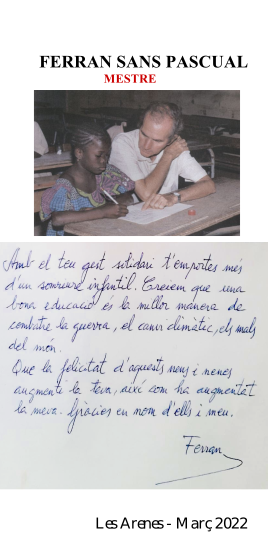 FERRAN SANS PASCUAL
MESTRE
Amb el teu gest solidari t'emportes més
d'un somriure infantil. Creiem que una
bona educació és la millor manera de
combatre la guerra, el canvi climàtic, els mals
del món.
Que la felicitat d'aquests nens i nenes
augmenti la teva, així com ha augmentat
la meva. Gràcies en nom d'ells i meu.
Ferran
Les Arenes - Març 2022